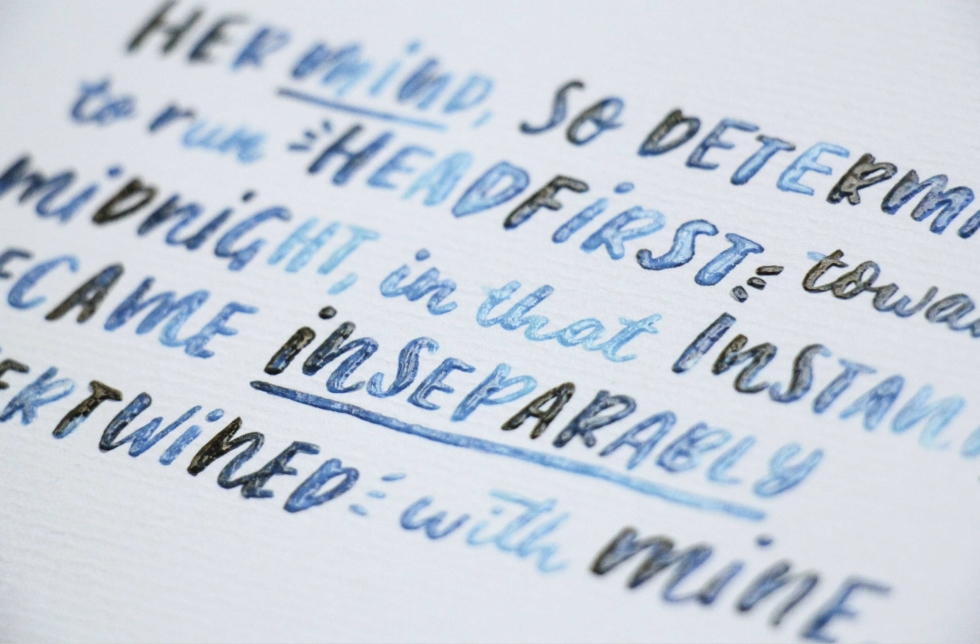 HER MiND, SO DETERM
to run HEADFiRST towa
MiDNiGHT, in that INSTAN
ECAME iNSEPARABLY
ERTWiNED with MiNE